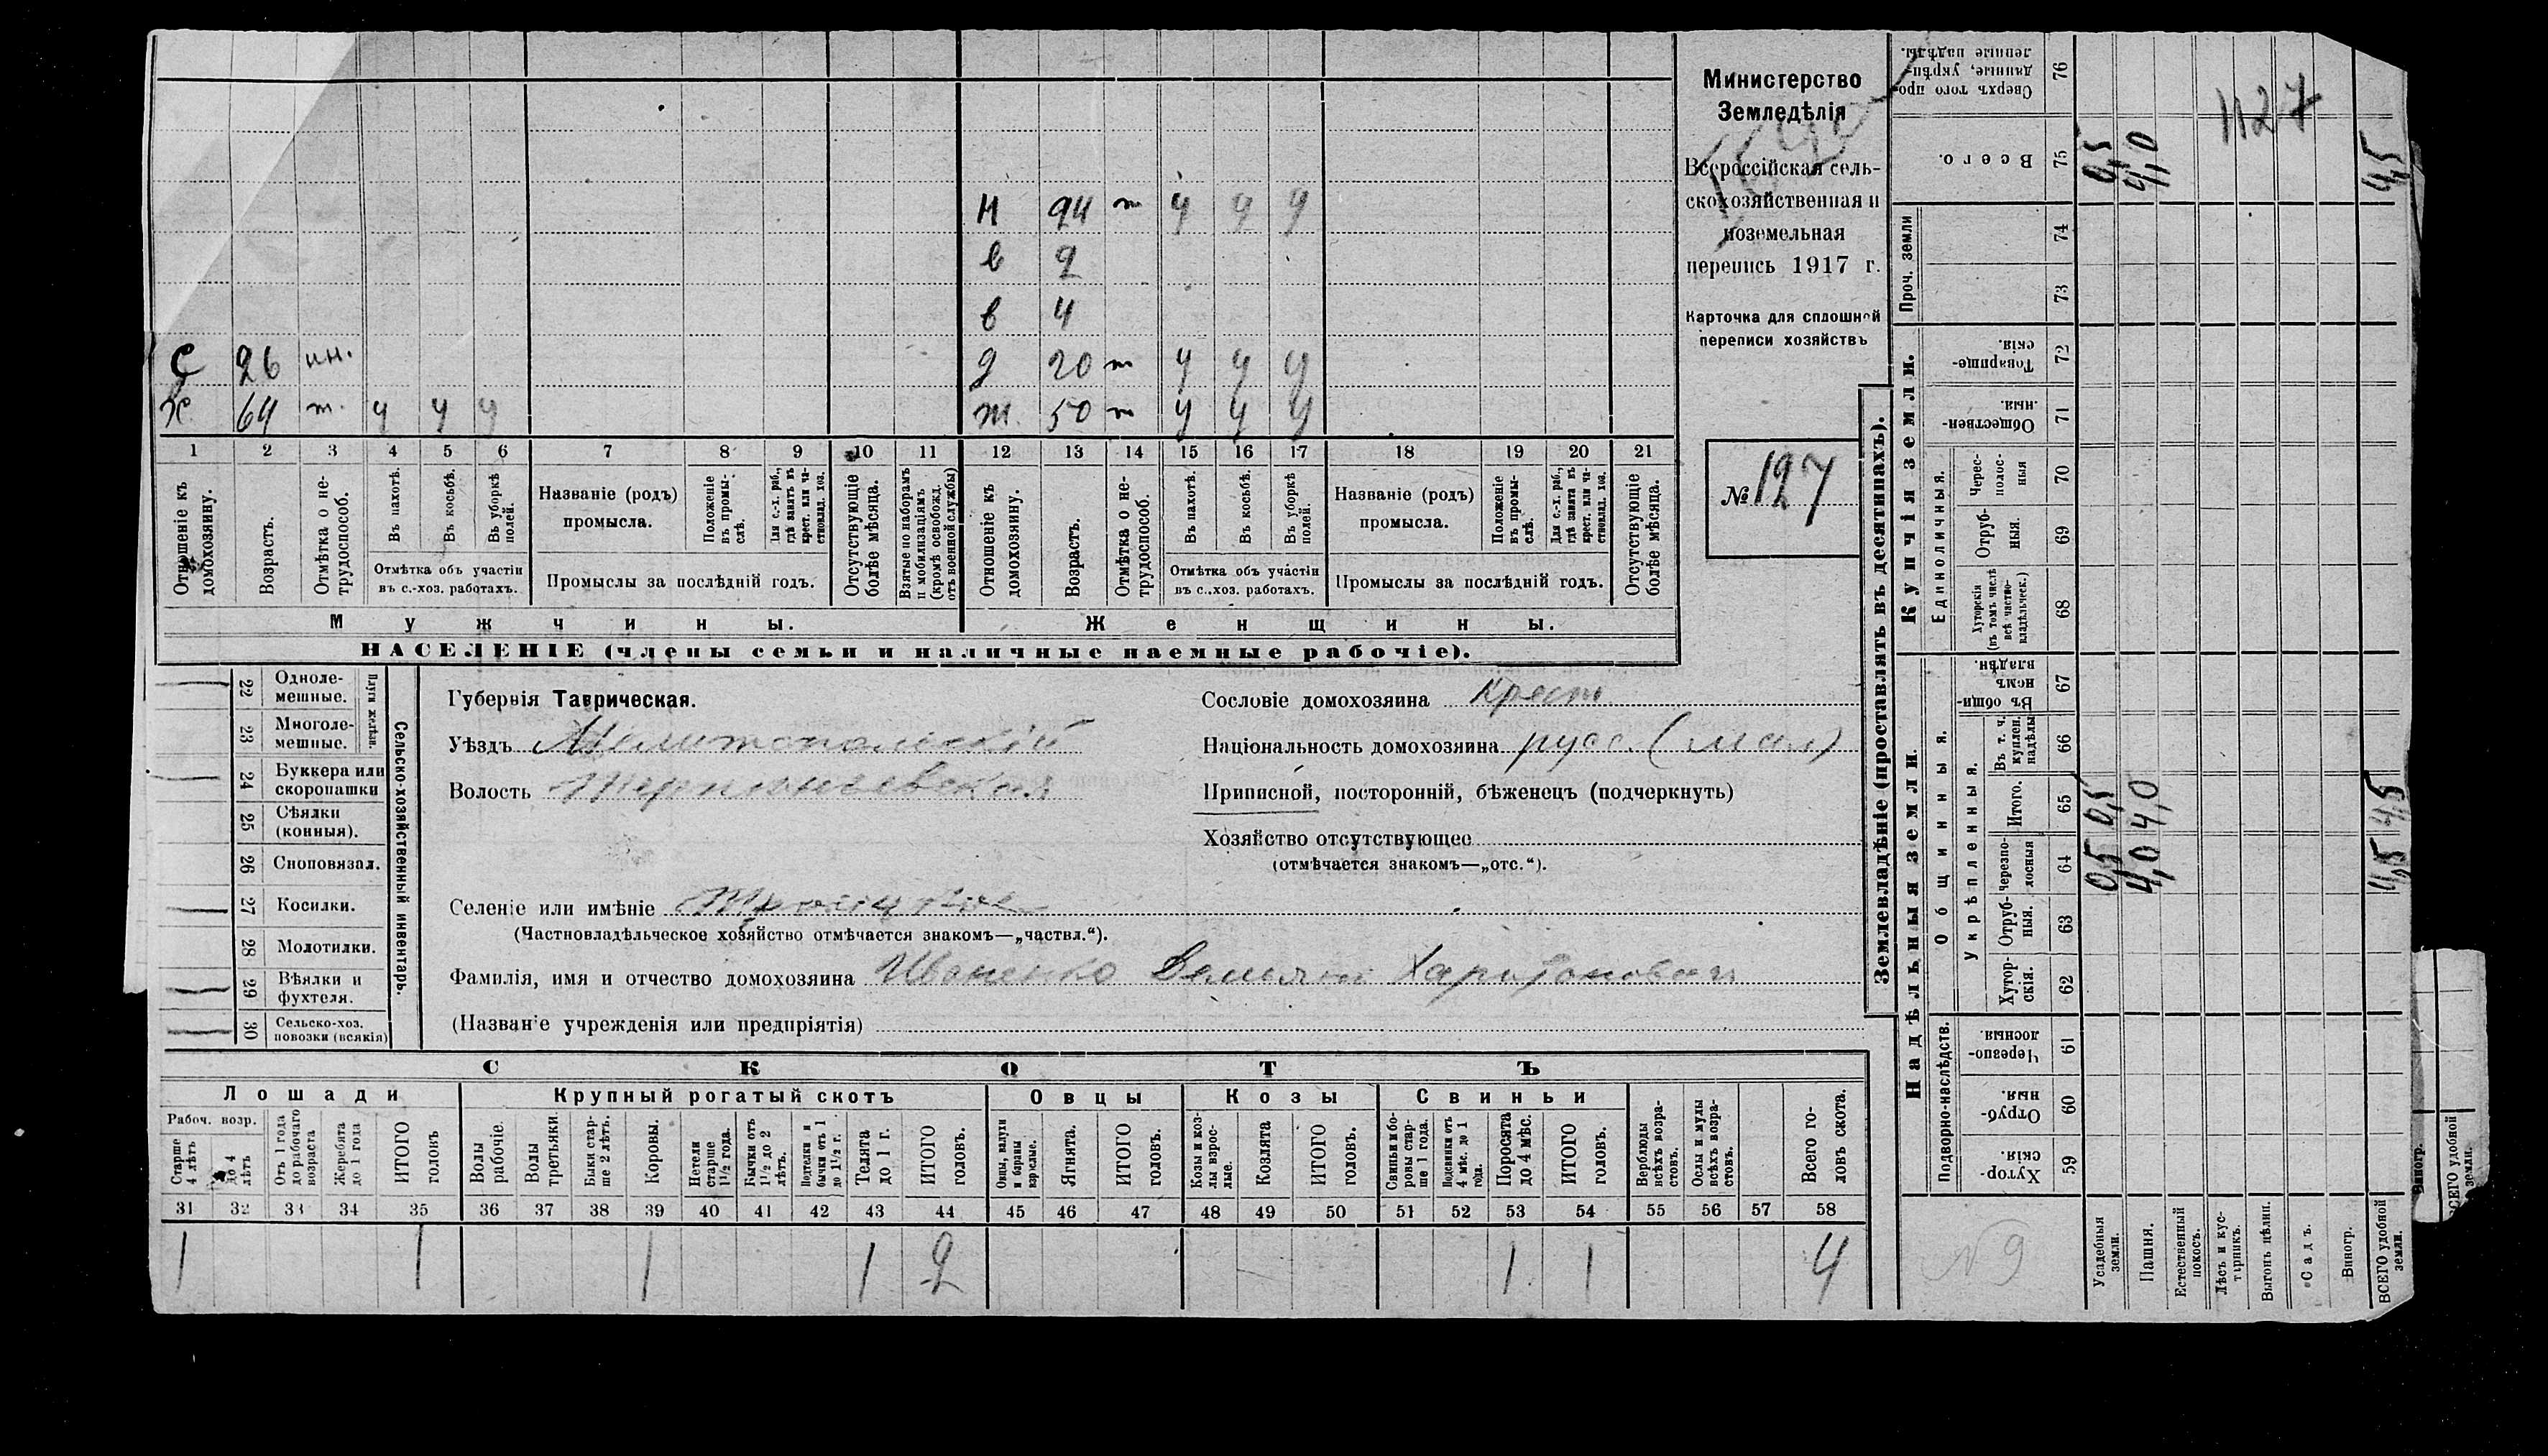 Министерство
Земледѣлія
Всероссійская сель-
скохозяйственная и
поземельная
перепись 1917 г.
Карточка для сплошной
переписи хозяйствъ
№ 127
Н 24 т ч ч ч
в 2
в 4
С 26 ин. д 20 т ч ч ч
Х. 64 т. ч ч ч ж. 50 т ч ч ч
1 2 3 4 5 6 7 8 9 10 11 12 13 14 15 16 17 18 19 20 21
Отношеніе къ домохозяину.
Возрастъ.
Отмѣтка о не-трудоспособ.
Въ пахотѣ.
Въ косьбѣ.
Въ уборкѣ полей.
Отмѣтка объ участіи
въ с.-хоз. работахъ.
Названіе (родъ)
промысла.
Положеніе въ промы-слѣ.
Для с.-х. раб., гдѣ занятъ въ крест. или ча-стновлад. хоз.
Промыслы за послѣдній годъ.
Отсутствующіе болѣе мѣсяца.
Взятые по наборамъ и мобилизаціямъ (кромѣ освобожд. отъ военной службы)
Отношеніе къ домохозяину.
Возрастъ.
Отмѣтка о не-трудоспособ.
Въ пахотѣ.
Въ косьбѣ.
Въ уборкѣ полей.
Отмѣтка объ участіи
въ с.-хоз. работахъ.
Названіе (родъ)
промысла.
Положеніе въ промы-слѣ.
Для с.-х. раб., гдѣ занята въ крест. или ча-стновлад. хоз.
Промыслы за послѣдній годъ.
Отсутствующіе болѣе мѣсяца.
Мужчины. Женщины.
НАСЕЛЕНІЕ (члены семьи и наличные наемные рабочіе).
Сельско-хозяйственный инвентарь.
Плуги желѣзн.
22 Одноле-мешные.
23 Многоле-мешные.
24 Буккера или скоропашки
25 Сѣялки (конныя).
26 Сноповязал.
27 Косилки.
28 Молотилки.
29 Вѣялки и фухтеля.
30 Сельско-хоз. повозки (всякія)
Губернія Таврическая.
Уѣздъ Мелитопольскій
Волость Терпѣньевская
Селеніе или имѣніе Троицкое
(Частновладѣльческое хозяйство отмѣчается знакомъ—„частвл.“).
Фамилія, имя и отчество домохозяина Иваненко Демьянъ Харитоновичъ
(Названіе учрежденія или предпріятія)
Сословіе домохозяина Крест
Національность домохозяина русс. (мал)
Приписной, посторонній, бѣженецъ (подчеркнуть)
Хозяйство отсутствующее
(отмѣчается знакомъ—„отс.“).
СКОТЪ
Лошади Крупный рогатый скотъ Овцы Козы Свиньи
Рабоч. возр.
Старше 4 лѣтъ
до 4 лѣтъ
Отъ 1 года до рабочаго возраста
Жеребята до 1 года
ИТОГО головъ
Волы рабочіе.
Волы третьяки.
Быки стар-ше 2 лѣтъ.
Коровы.
Нетели старше 1½ года.
Бычки отъ 1½ до 2 лѣтъ.
Подтелки и бычки отъ 1 до 1½ г.
Телята до 1 г.
ИТОГО головъ.
Овцы, валухи и бараны взрослые.
Ягнята.
ИТОГО головъ.
Козы и коз-лы взрос-лые.
Козлята
ИТОГО головъ.
Свиньи и бо-ровы стар-ше 1 года.
Подсвинки отъ 4 мѣс. до 1 года.
Поросята до 4 мѣс.
ИТОГО головъ.
Верблюды всѣхъ возра-стовъ.
Ослы и мулы всѣхъ возра-стовъ.
Всего го-ловъ скота.
31 32 33 34 35 36 37 38 39 40 41 42 43 44 45 46 47 48 49 50 51 52 53 54 55 56 57 58
1 1 1 1 2 1 1 4
Землевладѣніе (проставлять въ десятинахъ).
Надѣльныя земли. Купчія земли. Проч. земли
Подворно-наслѣдств.
Общинныя.
Укрѣпленныя.
Единоличныя.
59 Хутор-скія.
60 Отруб-ныя.
61 Черезпо-лосныя
62 Хутор-скія.
63 Отруб-ныя.
64 Черезпо-лосныя 0,5 4,0 4,5
65 Итого. 0,5 4,0 4,5
66 Въ т. ч. куплен. надѣлы
67 Въ общи-номъ владѣн.
68 Хуторскія (въ томъ числѣ всѣ частно-владѣльческ.)
69 Отруб-ныя.
70 Черес-полос-ныя
71 Обществен-ныя.
72 Товарище-скія.
73
74
75 Всего. 0,5 4,0 4,5
76 Сверхъ того про-данные, укрѣп-ленные надѣлы.
1127
N 9
Усадебныя земли.
Пашня.
Естественный покосъ.
Лѣсъ и кус-тарникъ.
Выгонъ цѣлин.
Садъ.
Виногр.
ВСЕГО удобной земли.
Виногр.
ВСЕГО удобной земли.